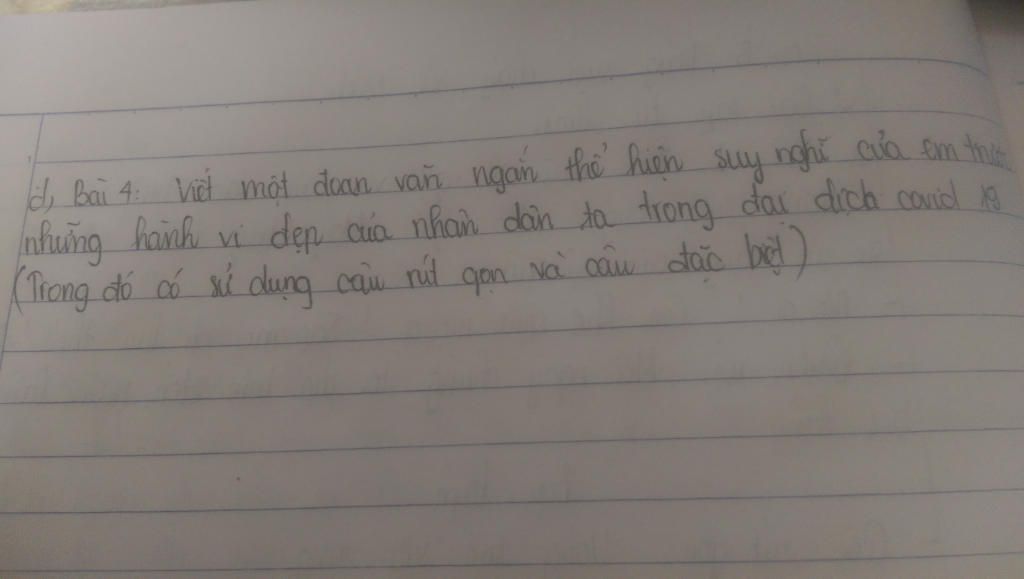 d, Bài 4: Viết một đoan văn ngắn thể hiện suy nghĩ của em trước
những hành vi đẹp của nhân dân ta trong đại dịch covid 19
(Trong đó có sử dụng câu rút gọn và câu đặc biệt)